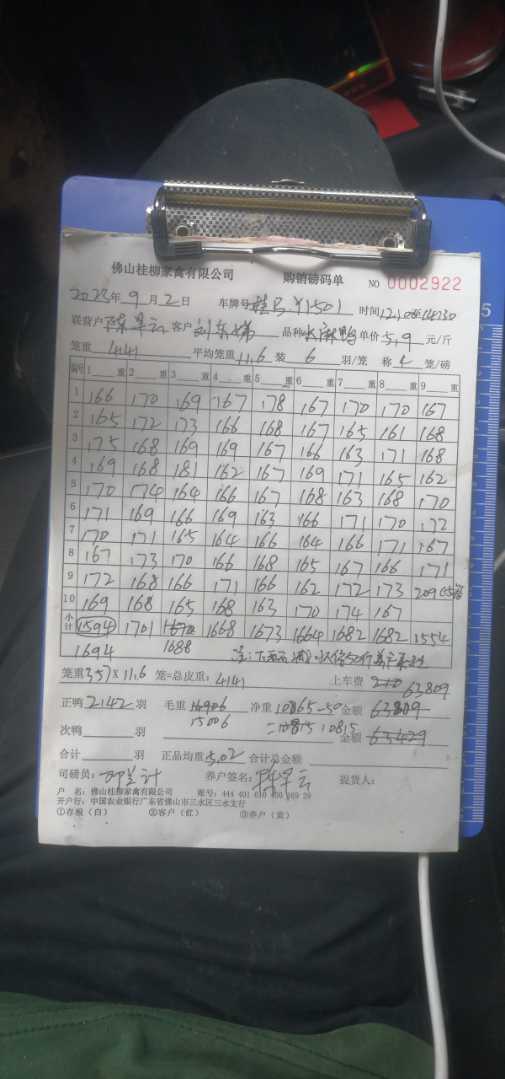 佛山桂柳家禽有限公司 购销磅码单 NO 0002922
2023年9月2日 车牌号 时间12:00至14:30
联营户 客户 品种 单价5.9元/斤
笼重 4141 平均笼重11.6 装 6 羽/笼 称 笼/磅
编号 1 重 2 重 3 重 4 重 5 重 6 重 7 重 8 重 9 重
1 166 170 169 167 178 167 170 170 167
2 165 172 173 166 168 167 165 161 168
3 175 168 169 169 167 166 163 171 168
4 169 168 181 162 167 169 171 165 162
5 170 174 164 166 167 168 163 168 170
6 171 169 166 169 163 166 171 170 172
7 170 171 165 164 166 164 166 171 167
8 167 173 170 166 168 165 167 166 171
9 172 168 166 171 166 162 172 173 209
10 169 168 165 168 163 170 174 167
小计 1594 1701 1668 1673 1664 1682 1682 1554
1694 1688
笼重357×11.6 笼=总皮重:4141 上车费 63809
正鸭2142羽 毛重 净重10865-50 金额 63809
15006 =10815 10815
次鸭 羽 金额
合计 羽 正品均重5.02 合计总金额
司磅员: 养户签名: 提货人:
户 名:佛山桂柳家禽有限公司 账号:444 401 010 400 069 29
开户行:中国农业银行广东省佛山市三水区三水支行
①存根(白) ②客户(红) ③养户(黄)